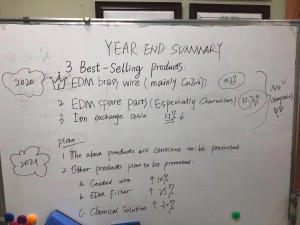 YEAR END SUMMARY
2020
3 Best-Selling products:
EDM brass wire (mainly CuZn37)
2 EDM spare parts (Especially Charmilles)
3 Ion exchange resin ↓
No
companies
plan:
2021
1 The above products will continue to be promoted
2 Other products plan to be promoted:
a Coated wire ↑ 10%
b EDM filter ↑ 25%
c Chemical Solution ↑ 30%